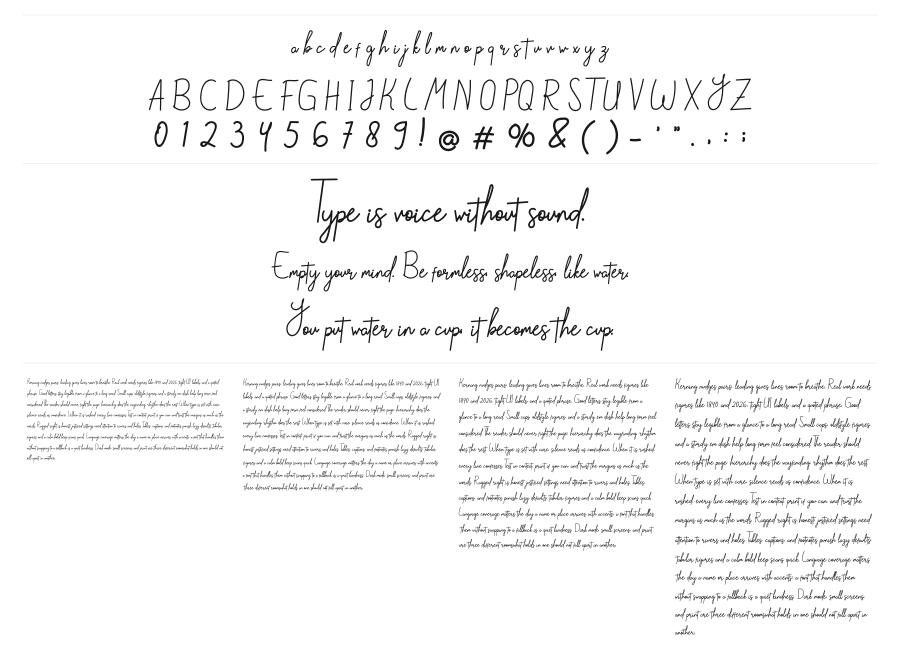 a b c d e f g h i j k l m n o p q r s t u v w x y z
A B C D E F G H I J K L M N O P Q R S T U V W X Y Z
0 1 2 3 4 5 6 7 8 9 ! @ # % & ( ) - ' " . , : ;
Type is voice without sound.
Empty your mind. Be formless, shapeless, like water.
You put water in a cup, it becomes the cup.
Kerning nudges pairs; leading gives lines room to breathe. Real work needs figures like 1890 and 2026, tight UI labels, and a quoted
phrase. Good letters stay legible from a glance to a long read. Small caps, oldstyle figures, and a sturdy em dash help long form feel
considered. The reader should never fight the page; hierarchy does the wayfinding, rhythm does the rest. When type is set with care,
silence reads as confidence. When it is rushed, every line confesses. Test in context, print if you can, and trust the margins as much as the
words. Ragged right is honest; justified settings need attention to rivers and holes. Tables, captions, and footnotes punish lazy defaults; tabular
figures and a calm bold keep scans quick. Language coverage matters the day a name or place arrives with accents; a font that handles them
without swapping to a fallback is a quiet kindness. Dark mode, small screens, and print are three different rooms; what holds in one should not
fall apart in another.
Kerning nudges pairs; leading gives lines room to breathe. Real work needs figures like 1890 and 2026, tight UI
labels, and a quoted phrase. Good letters stay legible from a glance to a long read. Small caps, oldstyle figures, and
a sturdy em dash help long form feel considered. The reader should never fight the page; hierarchy does the
wayfinding, rhythm does the rest. When type is set with care, silence reads as confidence. When it is rushed,
every line confesses. Test in context, print if you can, and trust the margins as much as the words. Ragged right is
honest; justified settings need attention to rivers and holes. Tables, captions, and footnotes punish lazy defaults; tabular
figures and a calm bold keep scans quick. Language coverage matters the day a name or place arrives with accents;
a font that handles them without swapping to a fallback is a quiet kindness. Dark mode, small screens, and print are
three different rooms; what holds in one should not fall apart in another.
Kerning nudges pairs; leading gives lines room to breathe. Real work needs figures like
1890 and 2026, tight UI labels, and a quoted phrase. Good letters stay legible from a
glance to a long read. Small caps, oldstyle figures, and a sturdy em dash help long form feel
considered. The reader should never fight the page; hierarchy does the wayfinding, rhythm
does the rest. When type is set with care, silence reads as confidence. When it is rushed,
every line confesses. Test in context, print if you can, and trust the margins as much as the
words. Ragged right is honest; justified settings need attention to rivers and holes. Tables,
captions, and footnotes punish lazy defaults; tabular figures and a calm bold keep scans quick.
Language coverage matters the day a name or place arrives with accents; a font that handles
them without swapping to a fallback is a quiet kindness. Dark mode, small screens, and print
are three different rooms; what holds in one should not fall apart in another.
Kerning nudges pairs; leading gives lines room to breathe. Real work needs
figures like 1890 and 2026, tight UI labels, and a quoted phrase. Good
letters stay legible from a glance to a long read. Small caps, oldstyle figures,
and a sturdy em dash help long form feel considered. The reader should
never fight the page; hierarchy does the wayfinding, rhythm does the rest.
When type is set with care, silence reads as confidence. When it is
rushed, every line confesses. Test in context, print if you can, and trust the
margins as much as the words. Ragged right is honest; justified settings need
attention to rivers and holes. Tables, captions, and footnotes punish lazy defaults;
tabular figures and a calm bold keep scans quick. Language coverage matters
the day a name or place arrives with accents; a font that handles them
without swapping to a fallback is a quiet kindness. Dark mode, small screens,
and print are three different rooms; what holds in one should not fall apart in
another.